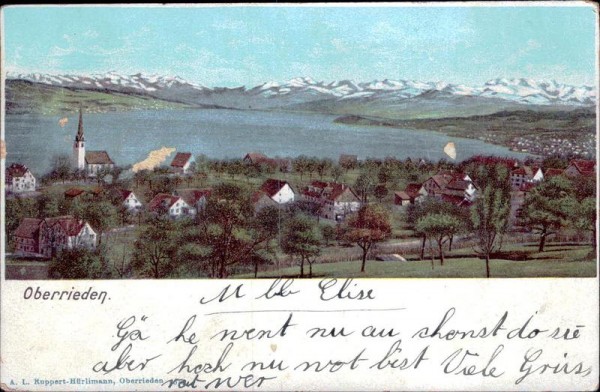 Oberrieden.
M lb Elise
Gä he went nu au chonst do sie
aber hoch nu wot bist Viele Grüss
vot wer
A. L. Ruppert-Hürlimann, Oberrieden